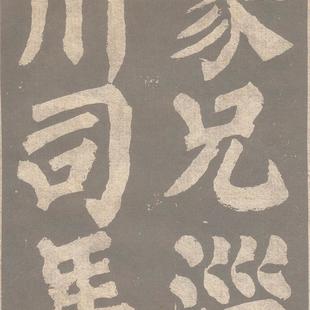 家兄巡
川司馬